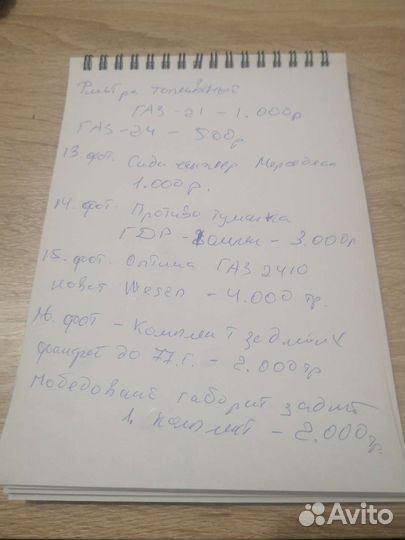 Фильтра топливный
ГАЗ-21 - 1.000р
ГАЗ-24 - 500р
13. фот. Сиди ченжер Мерседеса
1.000р.
14. фот. Противо туманка
ГДР - 3.000р
15. фот. Оптика ГАЗ 2410
новая Wesem - 4.000 тр.
16. фот - Комплект задних
фонарей до 77.г. - 2.000тр
Победовские габорит задние
1. Комплект - 2.000тр.
Avito